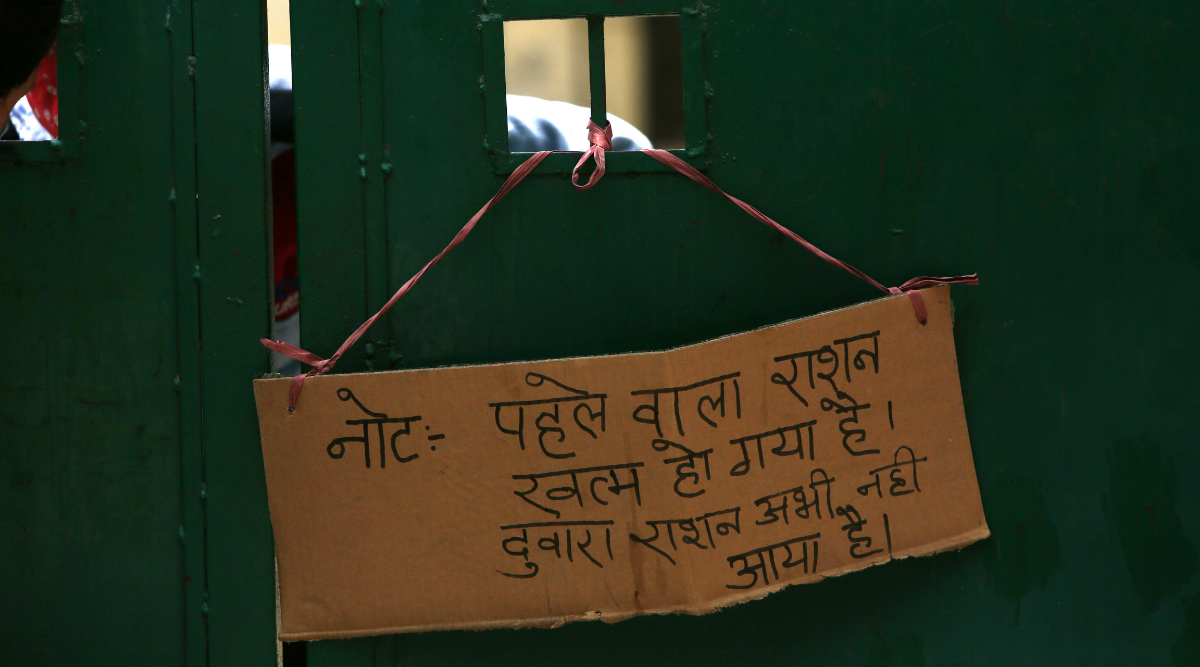 नोट:- पहले वाला राशन
खत्म हो गया है।
दुवारा राशन अभी नही
आया है।